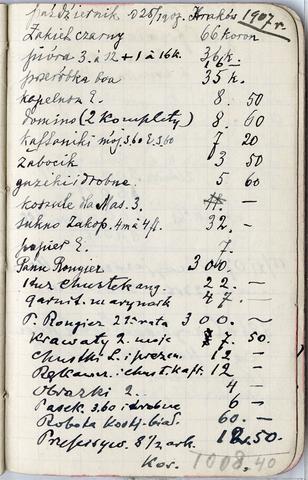 październik od 26/1907. Kraków 1907 r.
Żakiet czarny 66 koron
pióra 3 à 12 + 1 à 16 k. 36 k. 16
przeróbka boa 35 k.
kapelusz E. 8. 50
domino (2 komplety) 8. 60
kaftaniki mój 3.60 E. 3.60 7 20
żabocik 3 50
guziki i drobne 5 60
koszule dla Nas. 3.
sukno Zakop. 4 m à 4 fl. 32. —
papier E. 7.
Panu Rongier 300.
chustek ang. 22. —
garnit. marynark 47. —
P. Rongier 2 rata 300. —
Krawaty 2. moje 7. 50.
Chustki L. i prezen. 12 —
Rękawi. i chust. kaft. 12 —
Obrazki 2. 4 —
Pasek 3.60 i drobne 6 —
Robota kost. biał. 60. —
Przepisyw. 8½ ark. 12.50.
Kor. 1008.40